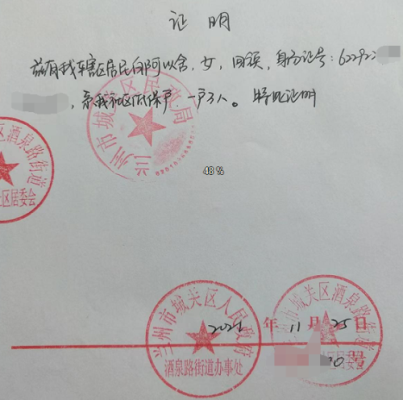 证 明
兹有我辖区居民白阿以舍,女,回族,身份证号:622922
,系我社区低保户一户3人。特此证明
兰州市城关区民政局
区酒泉路街道
社区居委会
48%
兰州市城关区人民政府
酒泉路街道办事处
市城关区酒泉路街
2021年11月25日